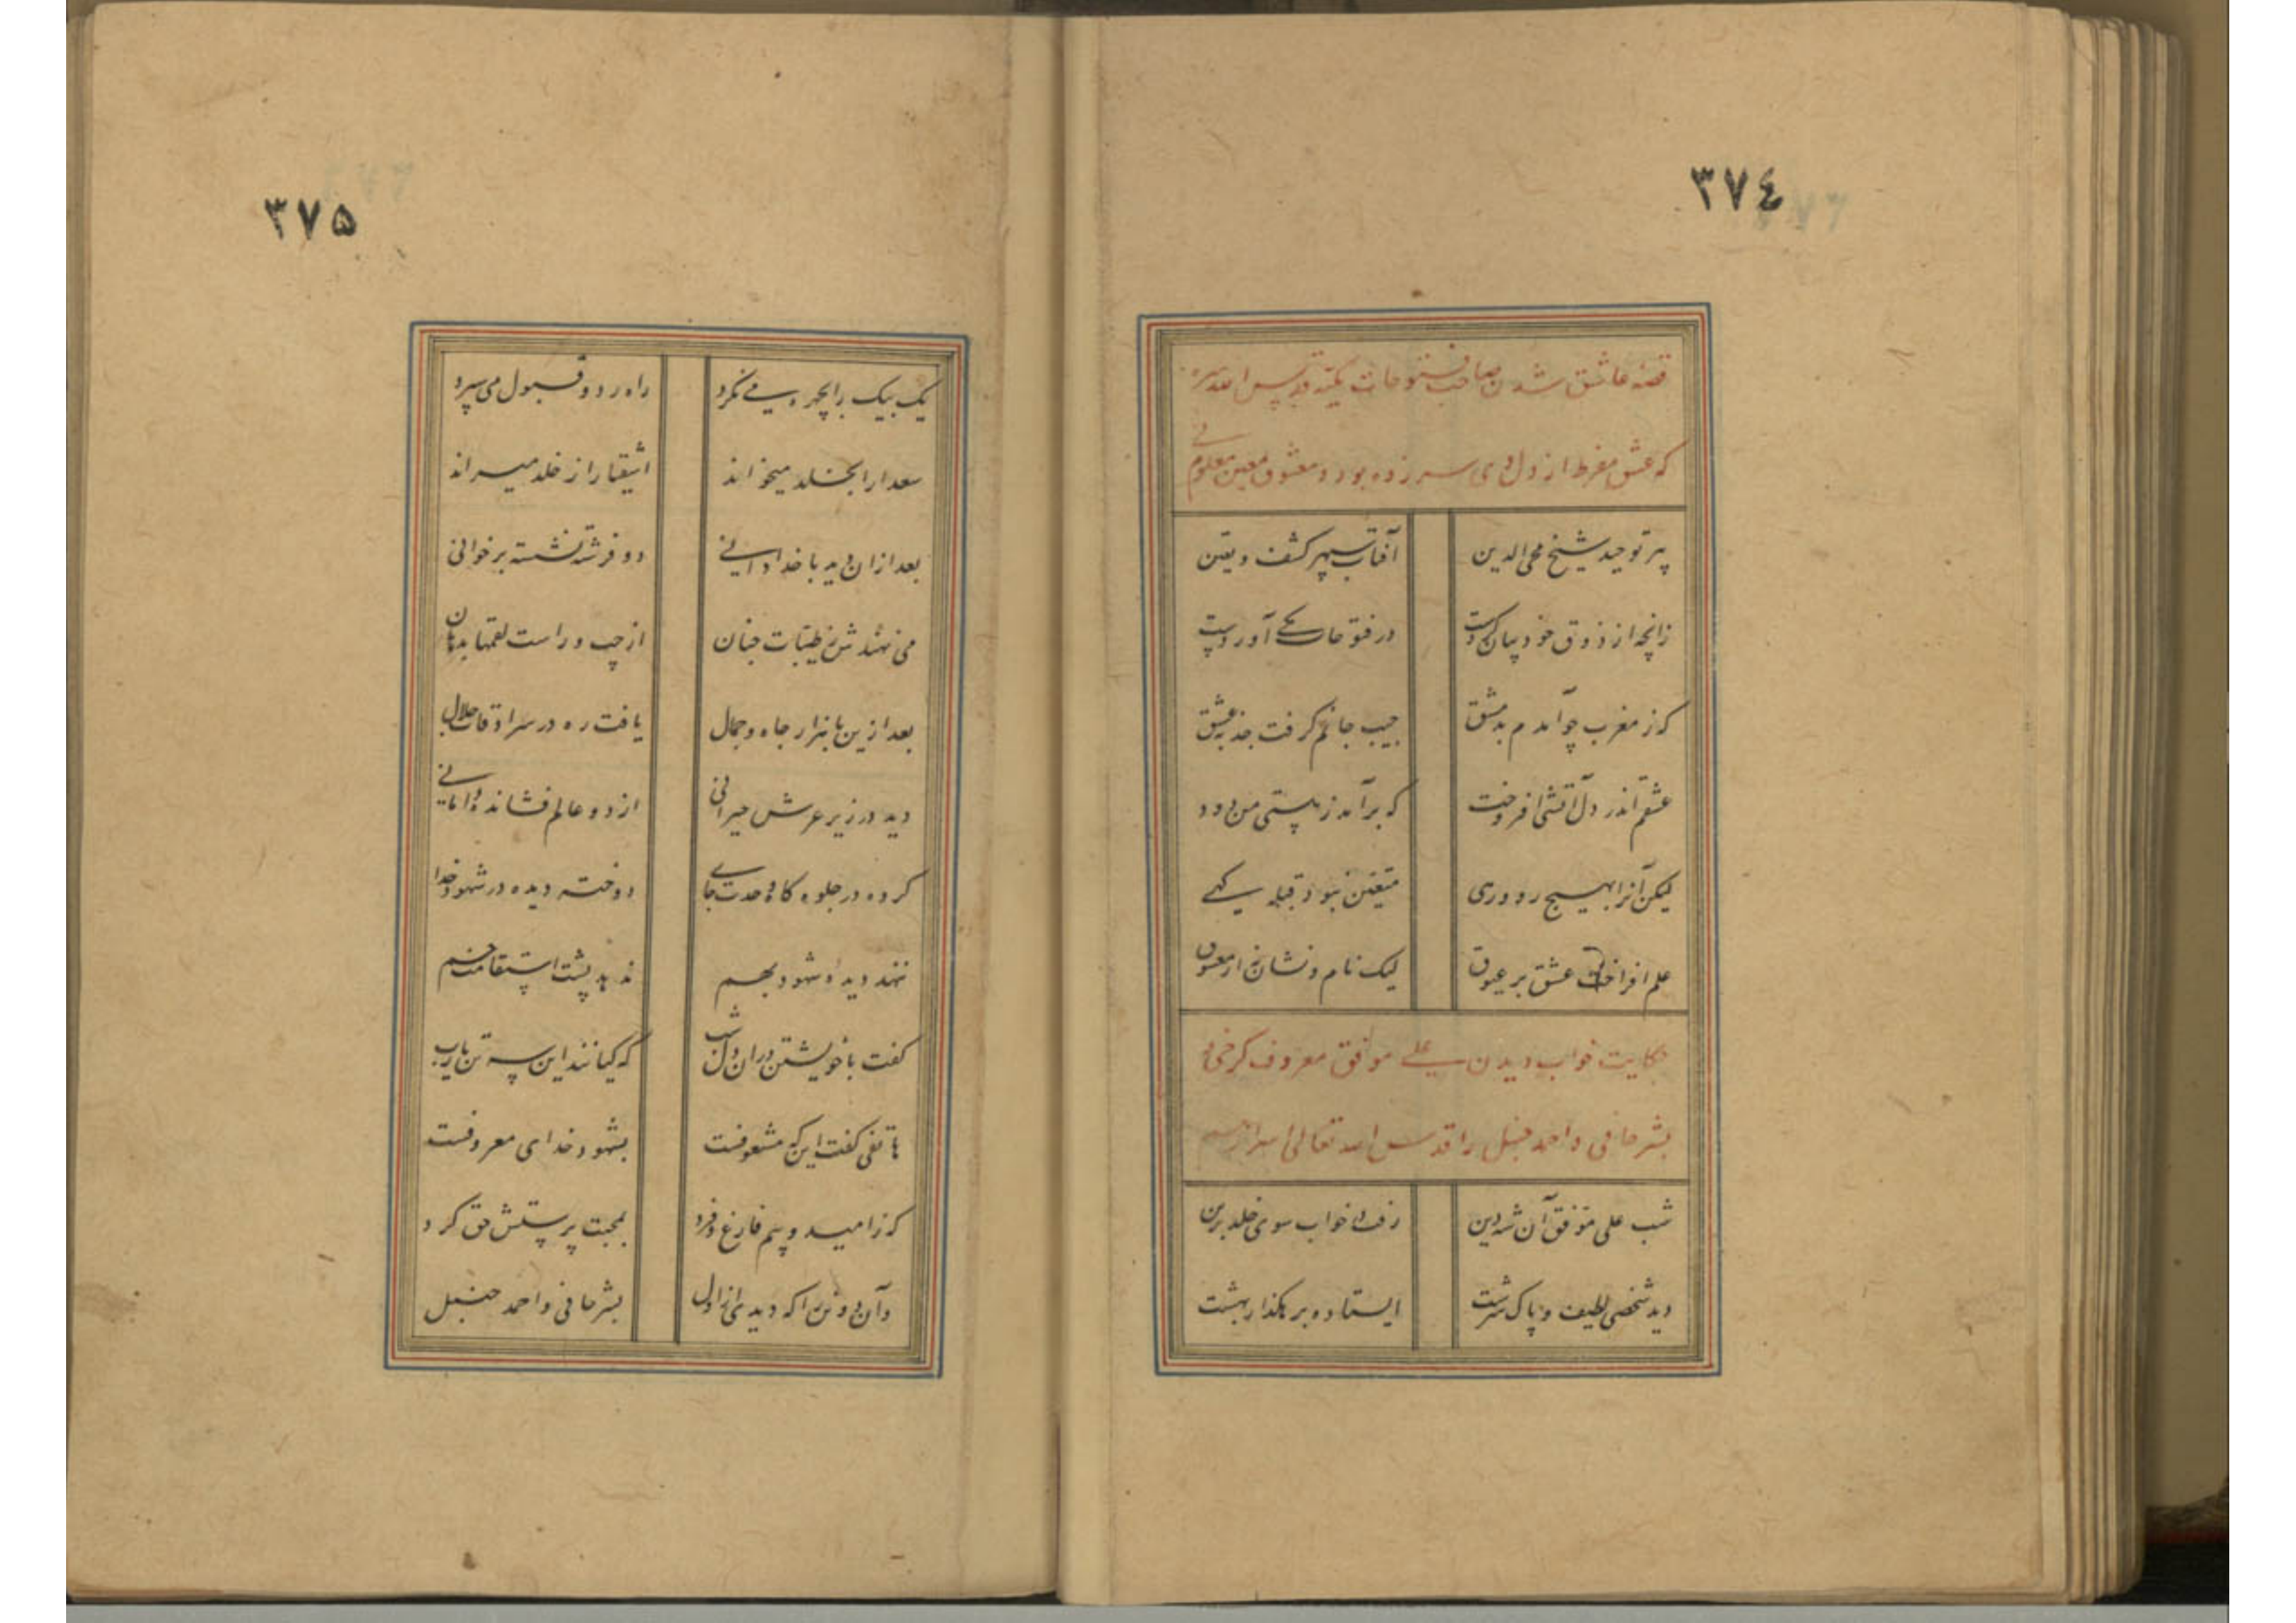 ٣٧٤
قصه عاشق شدن صاحب فتوحات مکیه قدس الله سره
که عشق مفرط از دل وی سر زده بود و معشوق معین معلوم نی
پیر توحید شیخ محی الدین آفتاب سپهر کشف و یقین
زانچه از ذوق خود بیان کردست در فتوحات مکی آوردست
که ز مغرب چو آمدم بدمشق جیب جانم گرفت جذبه عشق
عشقم اندر دل آتشی افروخت که برآمد ز هستی من دود
لیکن آنرا بهیچ رو وری متعین نبود قبله گهی
علم افراخت عشق بر عیوق لیک نام و نشان نه از معشوق
حکایت خواب دیدن علی موافق معروف کرخی و
بشر حافی و احمد حنبل را قدس الله تعالی اسرارهم
شب علی موفق آن شه دین رفت در خواب سوی خلد برین
دید شخصی لطیف و پاک سرشت ایستاده بر هکذار بهشت
٣٧۵
یک بیک را بچهره می نکرد راه رد و قبول می سپرد
سعدا را بخلد میخواند اشقیا را ز خلد میراند
بعد ازان دید با خدادانی دو فرشته نشسته بر خوانی
می نهندش ز طیبات جنان از چپ و راست لقمها بدهان
بعد ازین با هزار جاه و جمال یافت ره در سرادقات جلال
دید در زیر عرش حیرانی از دو عالم فشانده دامانی
کرده در جلوه کاه وحدت جای دوخته دیده در شهود خدا
ننهد دیده شهود بهم ندهد پشت استقامت خم
کفت با خویشتن دران دل شب که کیانند این سه تن یارب
هاتفی کفت این که مشعوفست بشهود خدای معروفست
که ز امید و بیم فارغ و فرد بمحبت پرستش حق کرد
وآن دو تن را که دیدی از اول بشر حافی و احمد حنبل